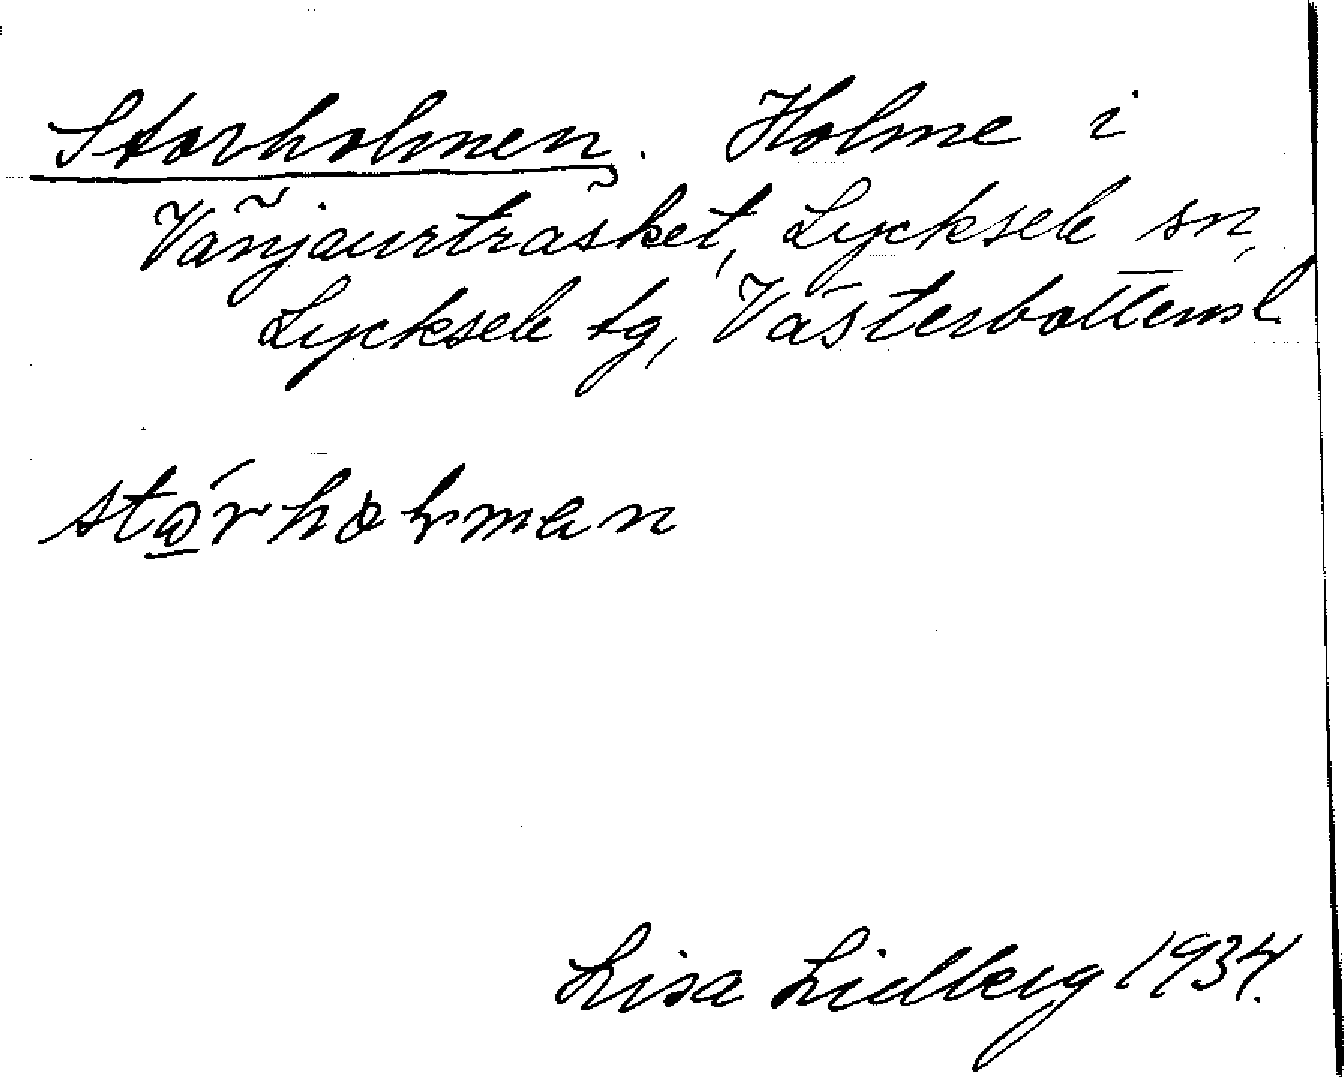 Storholmen. Holme i
Vänjaurträsket, Lycksele sn,
Lycksele tg, Västerbottens l.
Lisa Lidberg 1934.